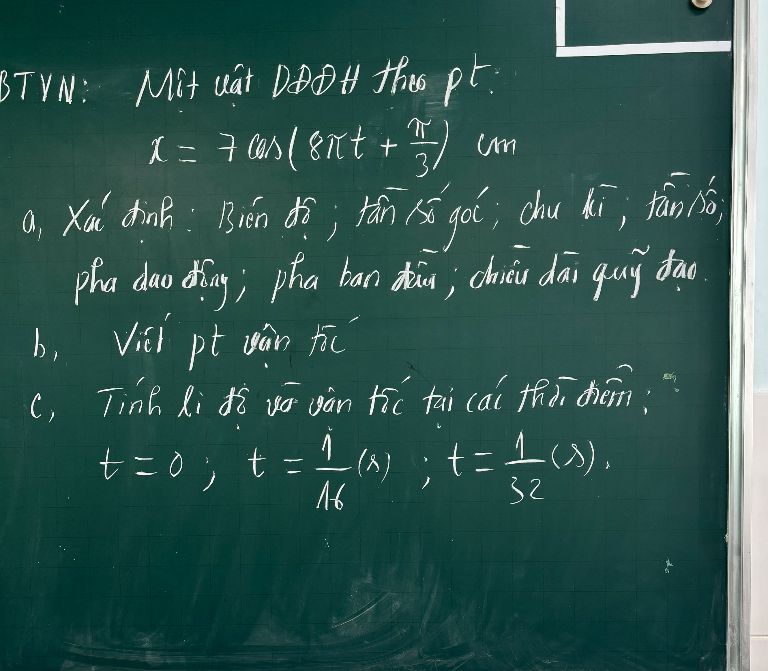 BTVN: Một vật DĐĐH theo pt:
x = 7 cos(8πt + π/3) cm
a, Xác định: Biên độ; tần số góc; chu kì; tần số;
pha dao động; pha ban đầu; chiều dài quỹ đạo.
b, Viết pt vận tốc
c, Tính li độ và vận tốc tại các thời điểm:
t = 0; t = 1/16 (s); t = 1/32 (s).